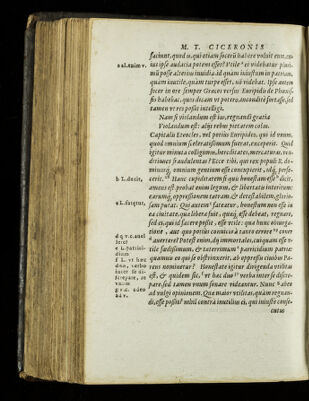 M. T. CICERONIS
faciunt, quod ii, qui etiam socerum habere voluit eum, cu-
ius ipse audacia potens esset? Vtile ei videbatur pluri-
mũ posse alterius inuidia. id quàm iniustum in patriam,
quàm inutile, quàm turpe esset, nō videbat. Ipse autem
socer in ore semper Græcos versus Euripidis de Phœnis-
sis habebat, quos dicam vt potero, incondite fortasse, sed
tamen vt res possit intelligi.
Nam si violandum est ius, regnandi gratia
Violandum est: aliis rebus pietatem colas.
Capitalis Eteocles, vel potius Euripides, qui id vnum,
quod omnium sceleratissimum fuerat, exceperit. Quid
igitur minuta colligimus, hæreditates, mercaturas, ven-
ditiones fraudulentas? Ecce tibi, qui rex populi R. do-
minusq́; omnium gentium esse concupierit, idq́; perfe-
cerit. Hanc cupiditatem si quis honestam esse dicit,
amens est. probat enim legum, & libertatis interitum:
earumq́; oppressionem tetram, & detestabilem, glorio-
sam putat. Qui autem fateatur, honestum non esse in
ea ciuitate, quæ libera fuit, quæq́; esse debeat, regnare,
sed ei, qui id facere possit, esse vtile: qua hunc
auertere? Potest enim, dij immortales, cuiquam esse v-
tile fœdissimum, & teterrimum parricidium patriæ:
quamuis is, qui se obstrinxerit, ab oppressis ciuibus Pa-
rens nominetur? Honestate igitur dirigenda vtilitas
est, & quidem sic, vt hæc duo verbo inter se discre-
pare, sed tamen vnum sonare videantur. Nunc
ad vulgi opinionem. Quæ maior vtilitas, quàm regnan-
di, esse possit? nihil contrà inutilius ei, qui iniustè conse-
cutus
a al. enim v.
b L. deëst.
c L. fatetur,